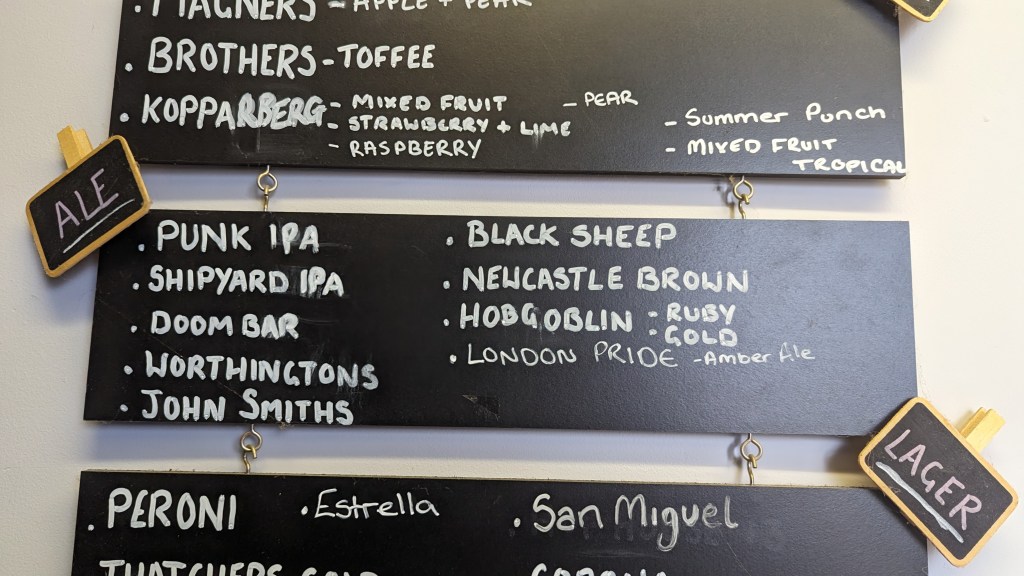 · MAGNERS - APPLE + PEAR
· BROTHERS - TOFFEE
· KOPPARBERG - MIXED FRUIT - PEAR
- STRAWBERRY + LIME
- RASPBERRY
- Summer Punch
- MIXED FRUIT
TROPICAL
ALE
· PUNK IPA
· SHIPYARD IPA
· DOOM BAR
· WORTHINGTONS
· JOHN SMITHS
· BLACK SHEEP
· NEWCASTLE BROWN
· HOBGOBLIN - RUBY
- GOLD
· LONDON PRIDE - Amber Ale
LAGER
· PERONI · Estrella · San Miguel
THATCHERS GOLD CORONA